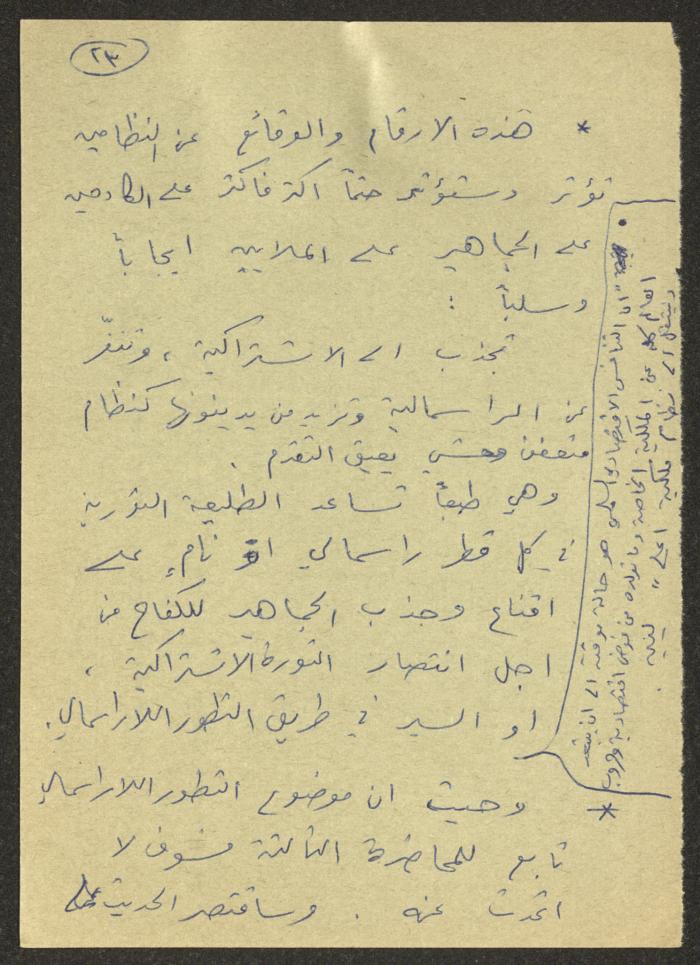 ٢٣
* هذه الارقام والوقائع عن النظامين
تؤثر وستؤثر حتماً اكثر فاكثر على الكادحين
على الجماهير على الملايين ايجاباً
وسلباً :
تجذب الى الاشتراكية ، وتنفّر
عن الراسمالية وتزيد من يدينونها كنظام
متعفن وحشي يعيق التقدم .
وهي طبعاً تساعد الطليعة الثورية
في كل قطر راسمالي او نامٍ على
اقناع وجذب الجماهير للكفاح من
اجل انتصار الثورة الاشتراكية ،
او السير في طريق التطور اللاراسمالي .
وحيث ان موضوع التطور اللاراسمالي
تابع للمحاضرة الثالثة فسوف لا
اتحدث عنه . وساقتصر الحديث على
* " ان التنافس الاقتصادي السلمي هو حالة موقتة الى ان يبتعد
العالم كله عن الملكية الخاصة وما تولده من فوضى اقتصادية وحروب
وينتقل الى نظام ملكية اعلى " لينين .